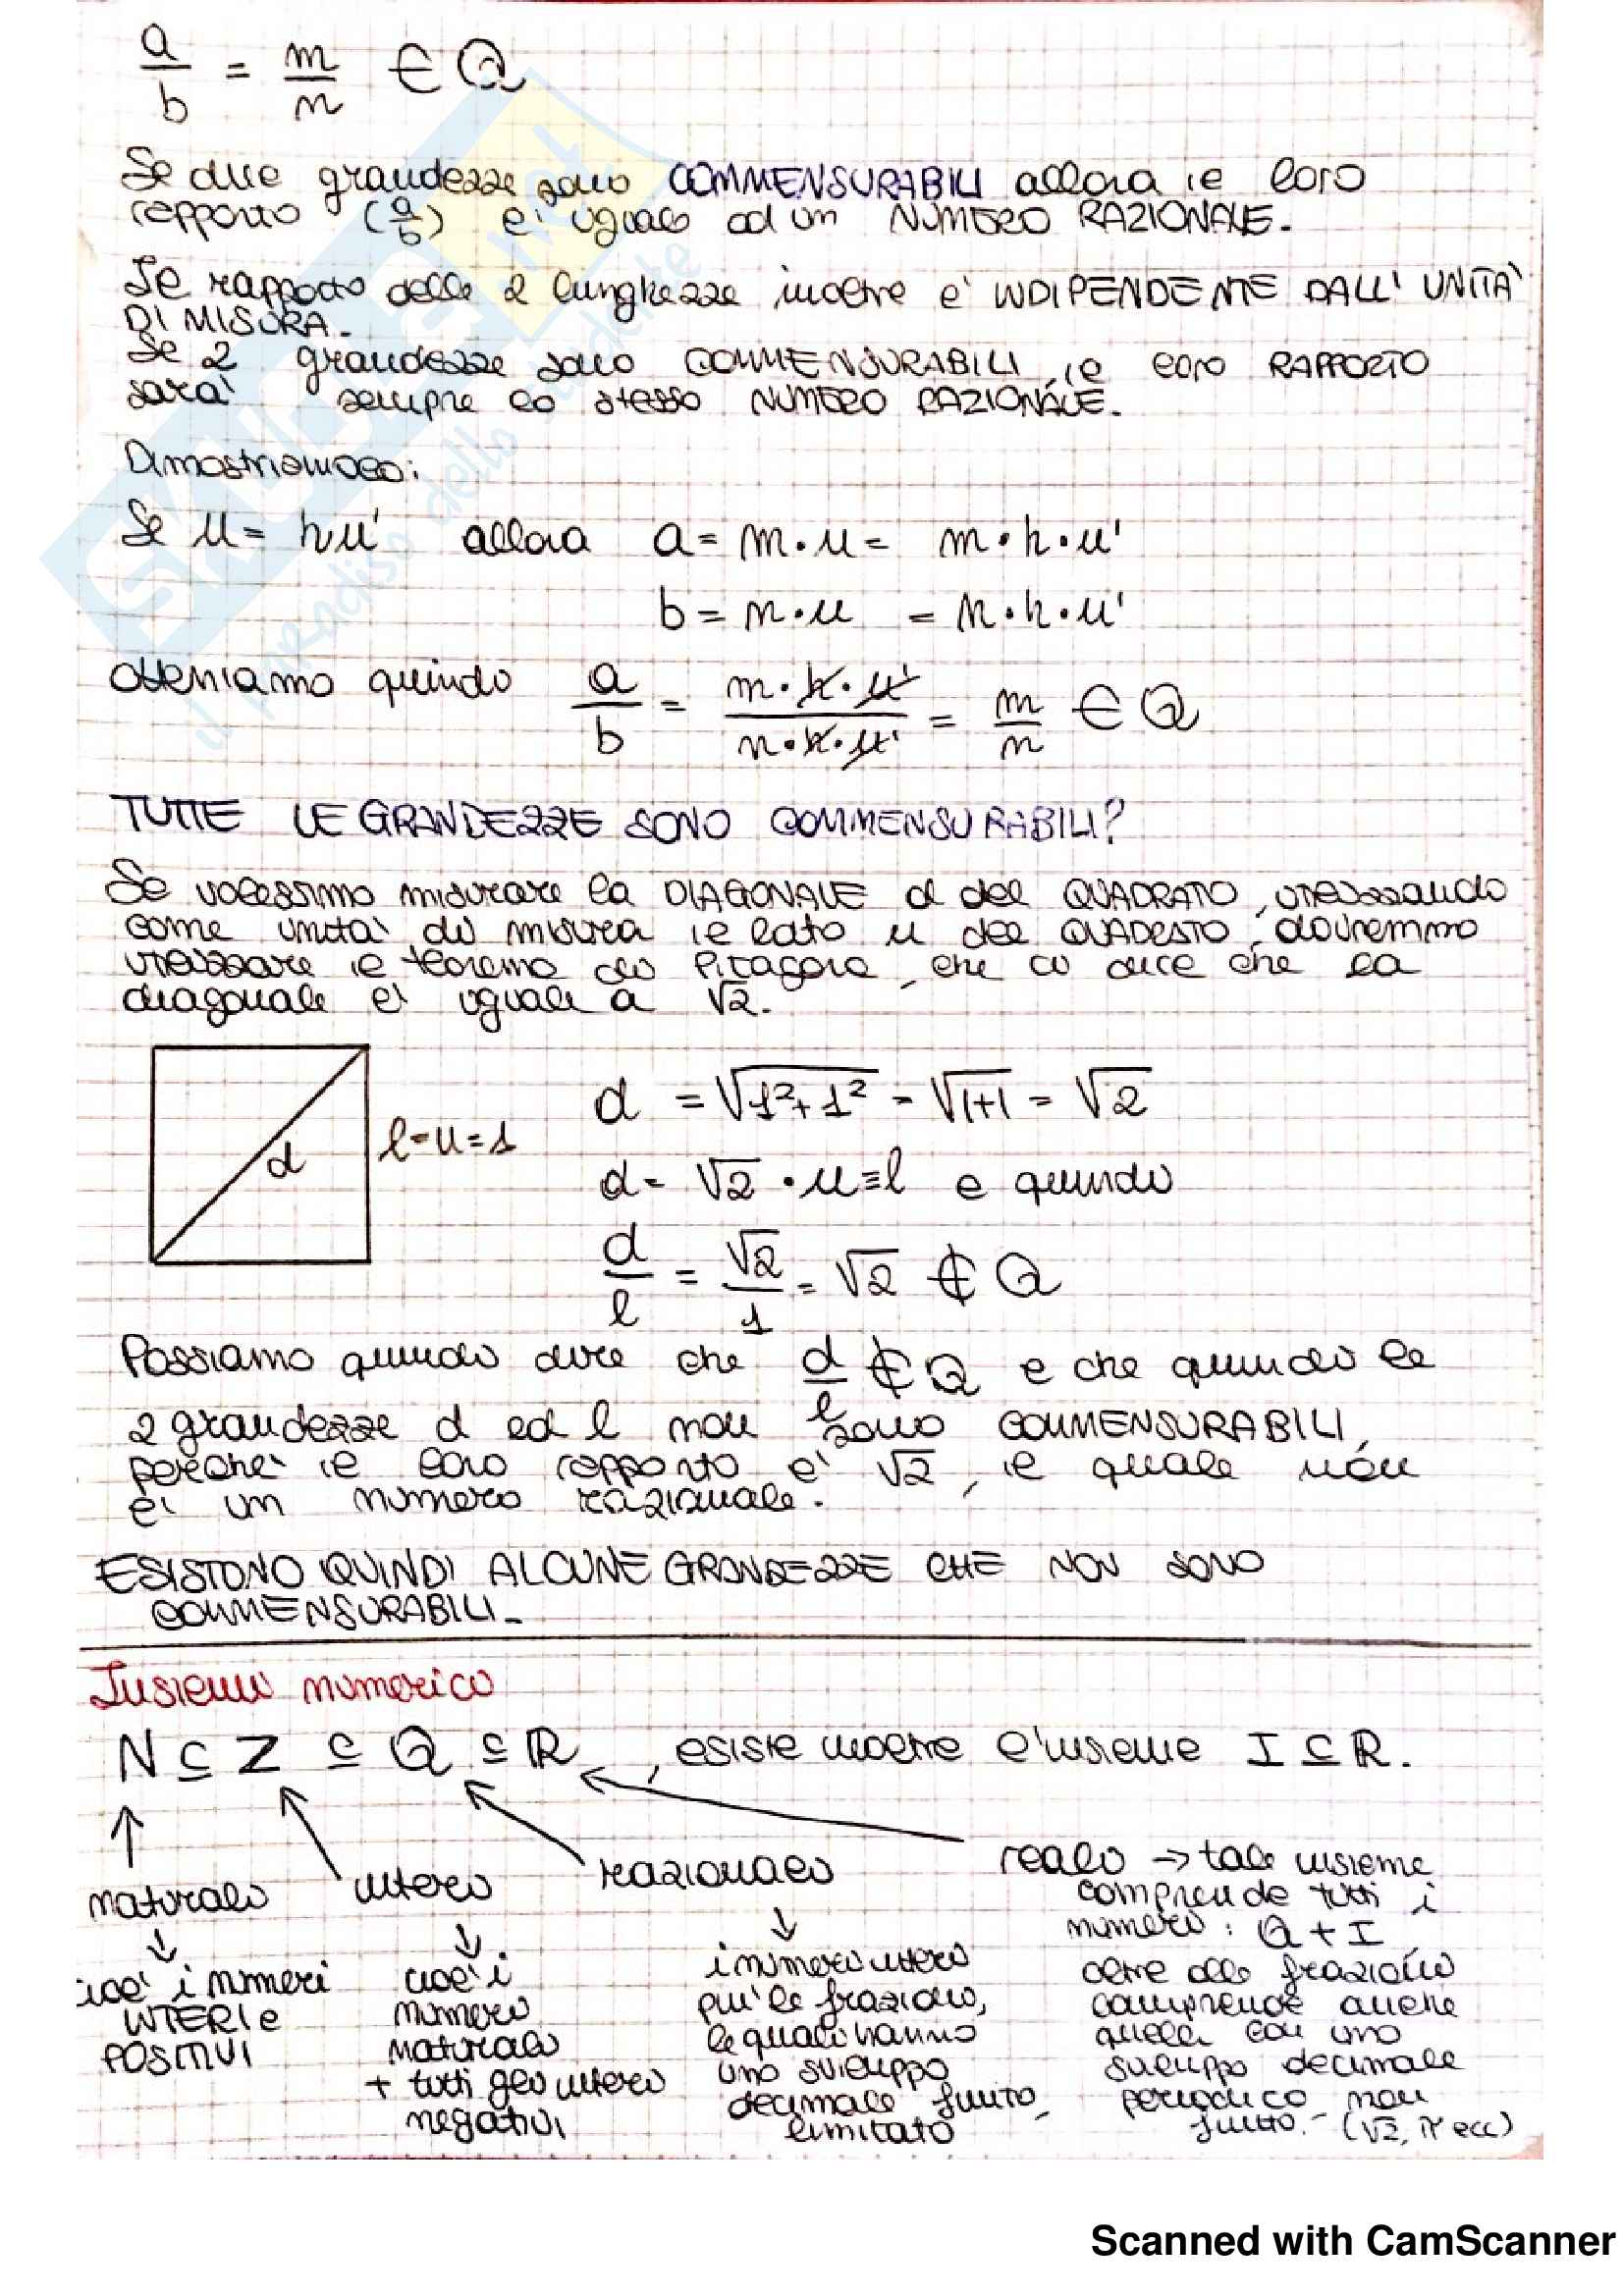 a/b = m/n ∈ Q
Se due grandezze sono COMMENSURABILI allora il loro
rapporto (a/b) e' uguale ad un NUMERO RAZIONALE.
Il rapporto delle 2 lunghezze inoltre e' INDIPENDENTE DALL' UNITA'
DI MISURA.
Se 2 grandezze sono COMMENSURABILI, il loro RAPPORTO
sara' sempre lo stesso NUMERO RAZIONALE.
Dimostriamolo:
Se u = hu' allora a = m·u = m·h·u'
b = n·u = n·h·u'
otteniamo quindi a/b = m·h·u'/n·h·u' = m/n ∈ Q
TUTTE LE GRANDEZZE SONO COMMENSURABILI?
Se volessimo misurare la DIAGONALE d del QUADRATO, utilizzando
come unita' di misura il lato u del QUADRATO, dovremmo
utilizzare il teorema di Pitagora, che ci dice che la
diagonale e' uguale a √2.
d
l=u=1
d = √1²+1² = √1+1 = √2
d = √2 · u=l e quindi
d/l = √2/1 = √2 ∉ Q
Possiamo quindi dire che d/l ∉ Q e che quindi le
2 grandezze d ed l non sono COMMENSURABILI,
perche' il loro rapporto e' √2, il quale non
e' un numero razionale.
ESISTONO QUINDI ALCUNE GRANDEZZE CHE NON SONO
COMMENSURABILI.
Insiemi numerici
N ⊆ Z ⊆ Q ⊆ R, esiste inoltre l'insieme I ⊆ R.
naturali
↓
cioe' i numeri
INTERI e
POSITIVI
interi
↓
cioe' i
numeri
naturali
+ tutti gli interi
negativi
razionali
↓
i numeri interi
piu' le frazioni,
le quali hanno
uno sviluppo
decimale finito,
limitato
reali → tale insieme
comprende tutti i
numeri: Q + I
oltre alle frazioni
comprende anche
quelli con uno
sviluppo decimale
periodico non
finito. (√2, π ecc)
SKUOLA.net
il paradiso dello studente
Scanned with CamScanner